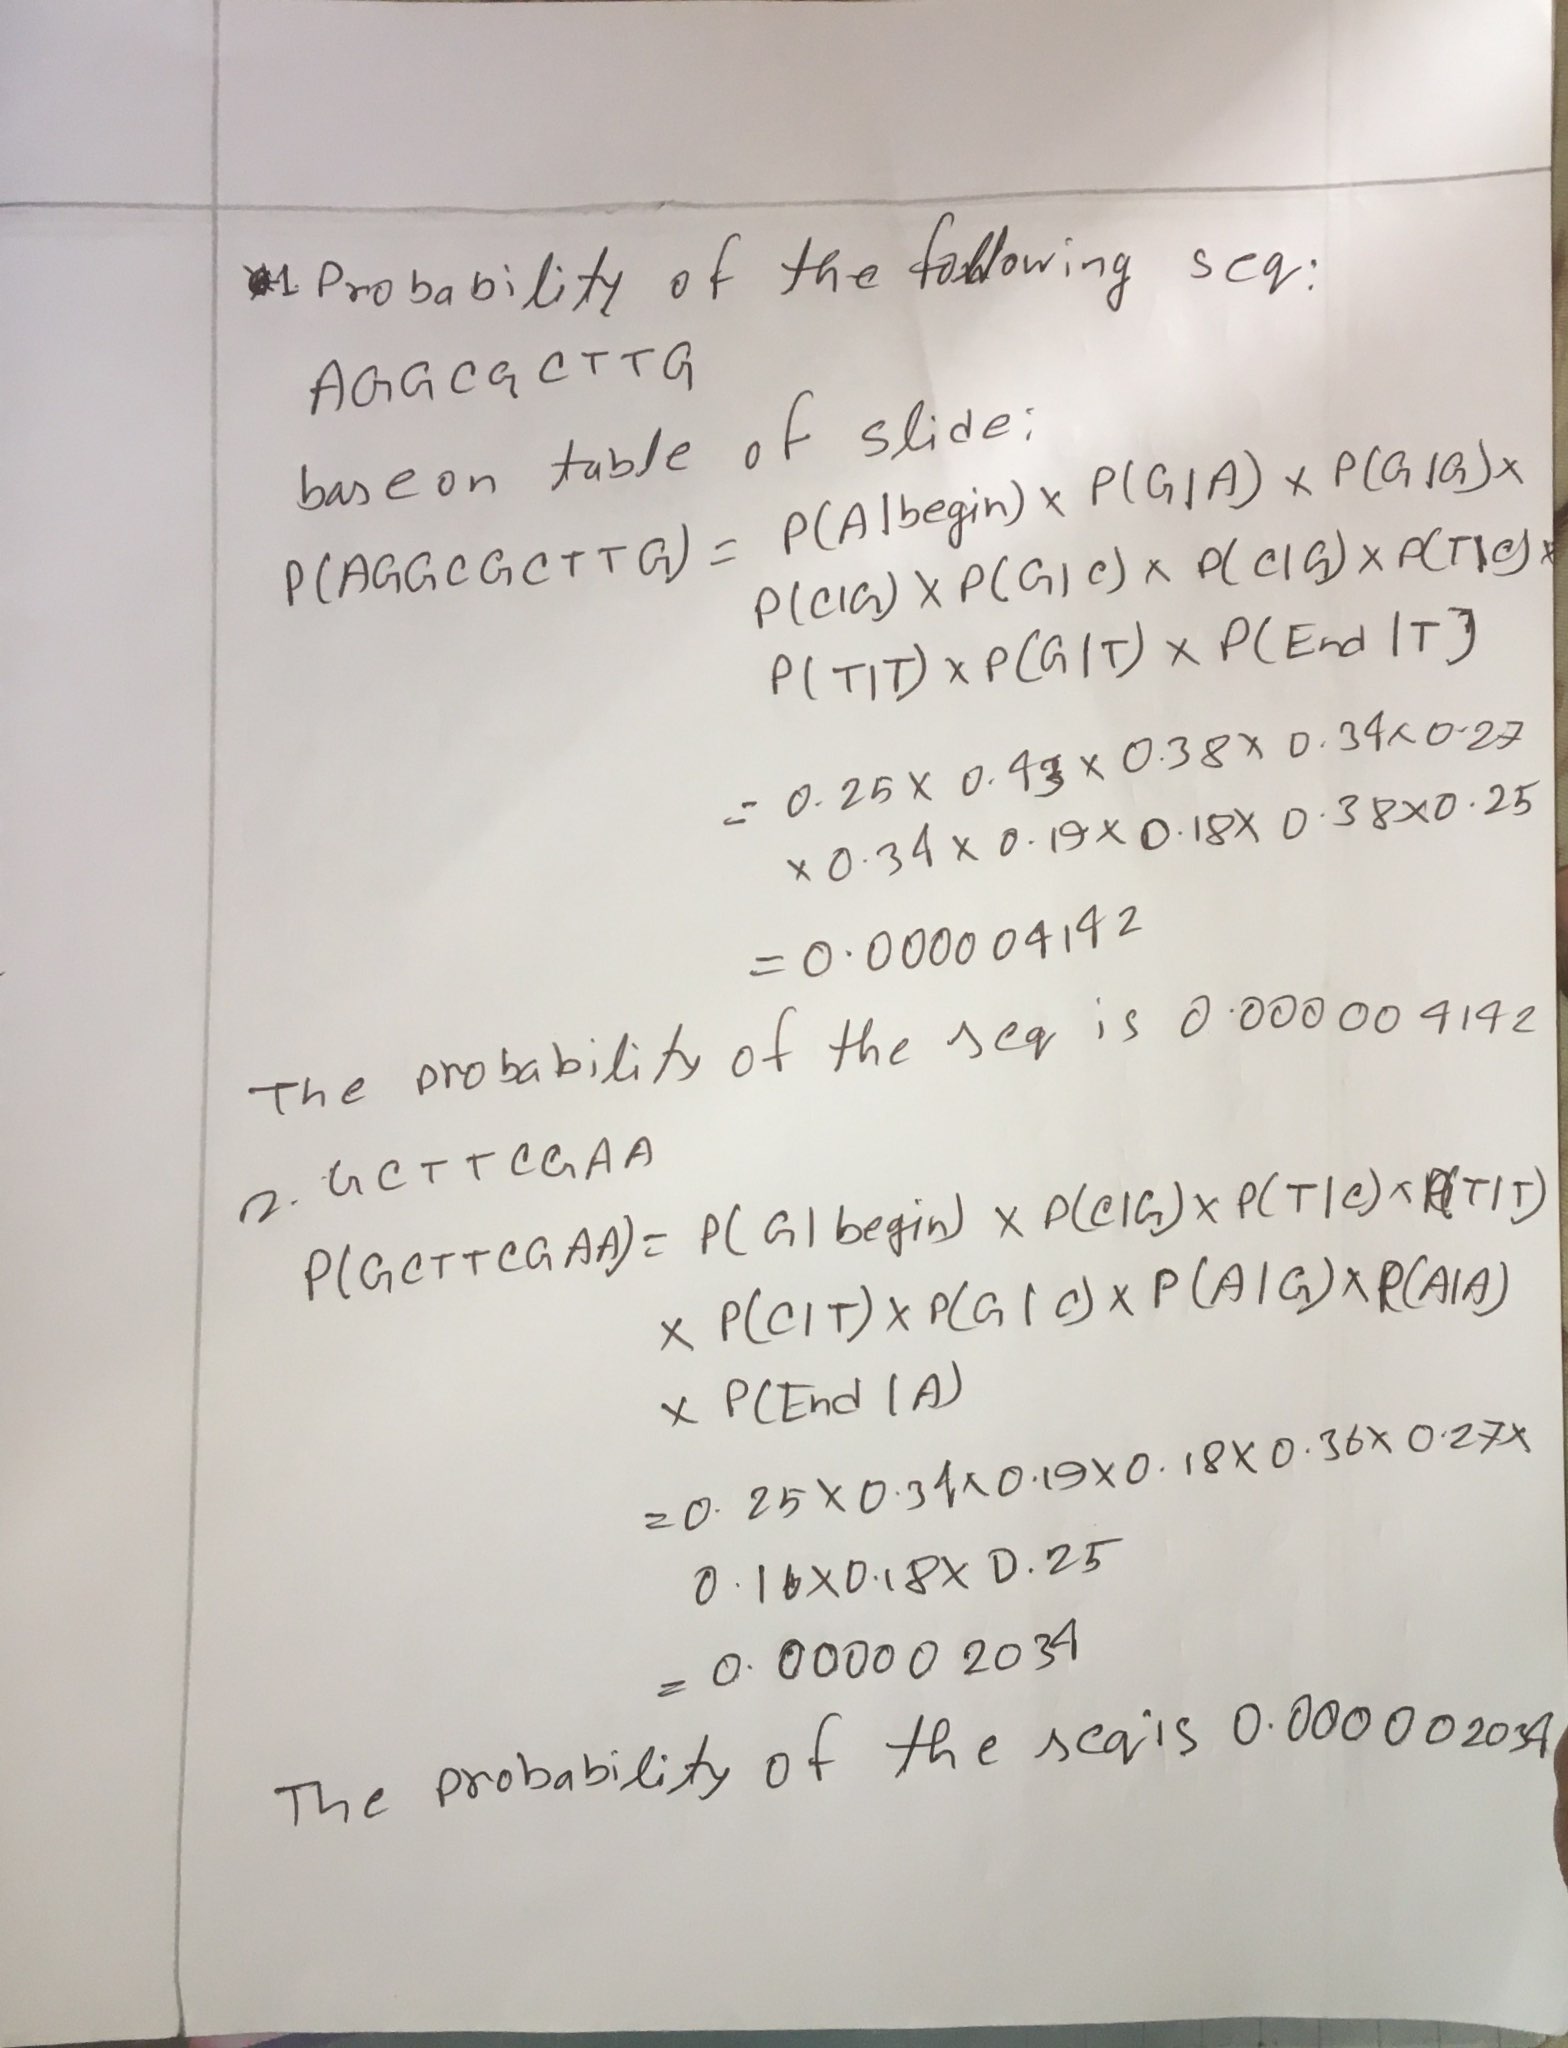 1. Probability of the following seq:
AGGCGCTTG
base on table of slide:
P(AGGCGCTTG) = P(A|begin) x P(G|A) x P(G|G) x
P(C|G) x P(G|C) x P(C|G) x P(T|C) x
P(T|T) x P(G|T) x P(End|T)
= 0.25 x 0.43 x 0.38 x 0.34 x 0.27
x 0.34 x 0.19 x 0.18 x 0.38 x 0.25
= 0.000004142
The probability of the seq is 0.000004142
2. GCTTCGAA
P(GCTTCGAA) = P(G|begin) x P(C|G) x P(T|C) x P(T|T)
x P(C|T) x P(G|C) x P(A|G) x P(A|A)
x P(End|A)
= 0.25 x 0.34 x 0.19 x 0.18 x 0.36 x 0.27 x
0.16 x 0.18 x 0.25
= 0.000002034
The probability of the seq is 0.000002034